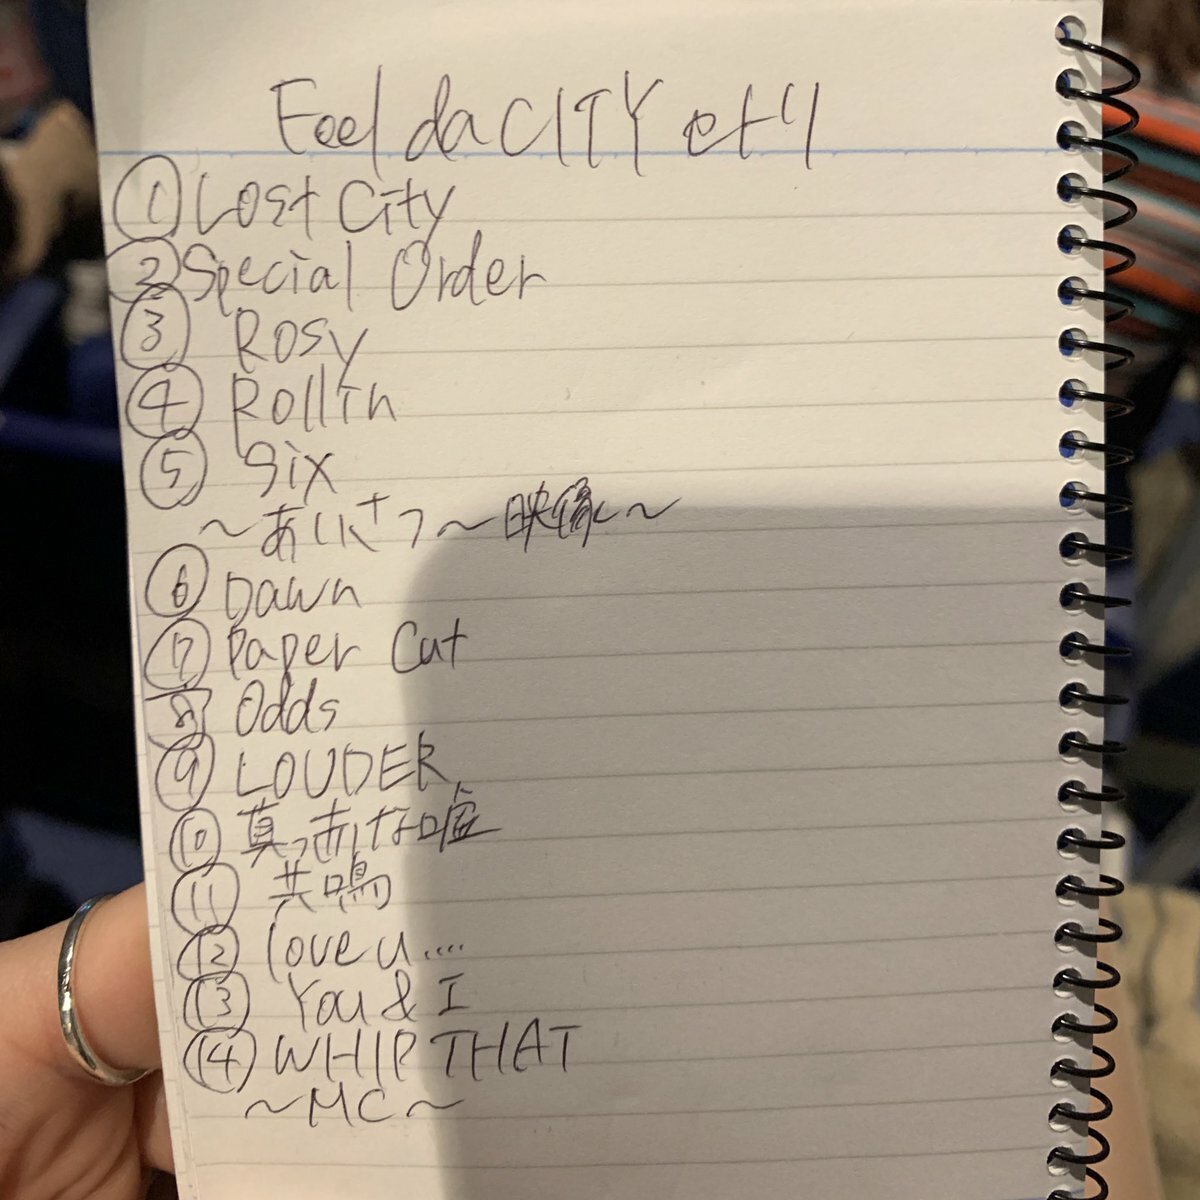 Feel da CITY セトリ
① Lost City
② Special Order
③ Rosy
④ Rollin
⑤ Six
～あいさつ～映像～
⑥ Dawn
⑦ Paper Cut
⑧ Odds
⑨ LOUDER
⑩ 真っ赤な嘘
⑪ 共鳴
⑫ love u....
⑬ You & I
⑭ WHIP THAT
～MC～